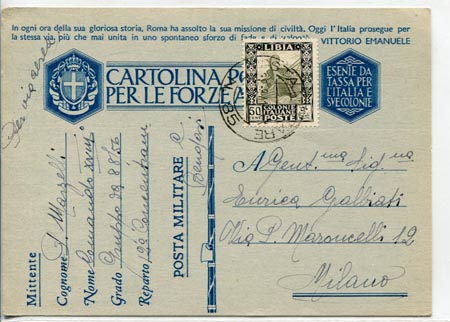 In ogni ora della sua gloriosa storia, Roma ha assolto la sua missione di civiltà. Oggi l'Italia prosegue per
la stessa via più che mai unita in uno spontaneo sforzo di fede e di
VITTORIO EMANUELE
Per via aerea
CARTOLINA PO
PER LE FORZE
LIBIA
50
COLONIE
ITALIANE
POSTE
ARE
ESENTE DA
TASSA PER
L'ITALIA E
SVE COLONIE
Mittente
Cognome
Nome Comando
Grado Gruppo da 88/56
Reparto
POSTA MILITARE
Bengasi
A Gent.ma Sig.na
Enrica Galbiati
Via P. Maroncelli 12
Milano